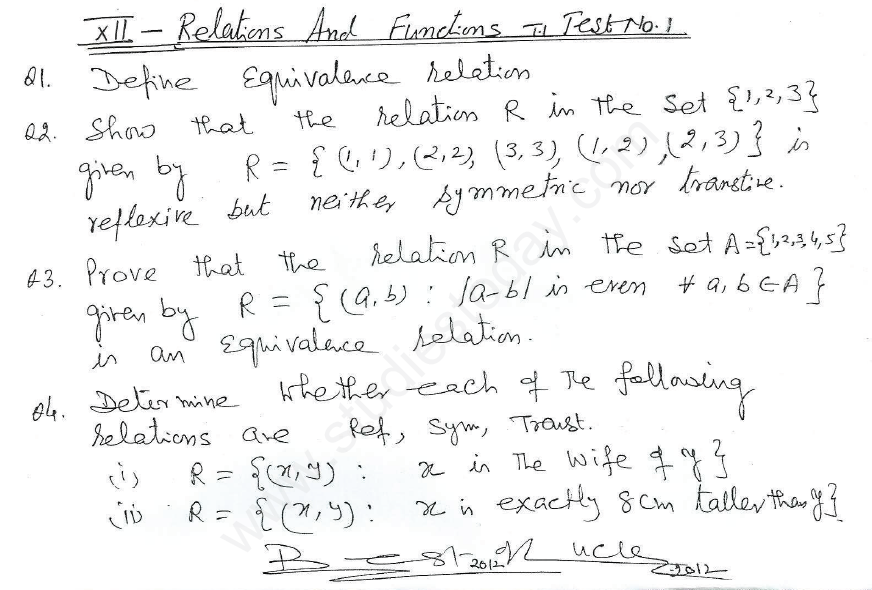 XII - Relations And Functions T.1 Test No. 1
Q1. Define Equivalence relation
Q2. Show that the relation R in the Set {1, 2, 3}
given by R = { (1, 1), (2, 2), (3, 3), (1, 2), (2, 3) } is
reflexive but neither symmetric nor transtive.
Q3. Prove that the relation R in the set A={1,2,3,4,5}
given by R = { (a, b) : |a-b| is even ∀ a, b ∈ A }
is an Equivalence relation.
Q4. Determine whether each of The following
relations are Ref, Sym, Transt.
(i) R = {(x, y) : x is The wife of y}
(ii) R = {(x, y) : x is exactly 8cm taller than y}
Best 2012 of Lucle 2012
www.studiestoday.com